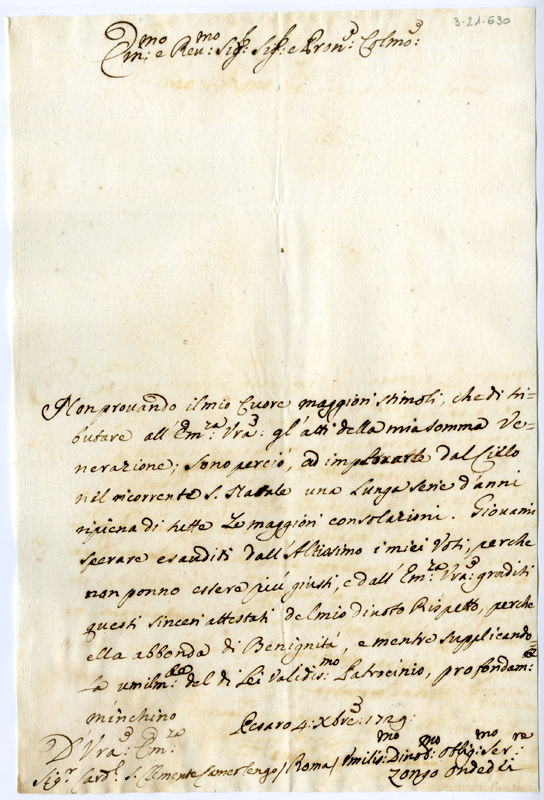 3-21-630
Em:mo e Rev:mo Sig:r Sig:r e Pron:e Colmo:
Non provando il mio Cuore maggiori stimoli, che di tri=
butare all'Em:za Vra: gl'atti della mia somma Ve=
nerazione; sono perciò, ad implorarle dal Cielo
nel ricorrente S. Natale una lunga serie d'anni
ripiena di tutte le maggiori consolazioni. Giovami
sperare esauditi dall'Altissimo i miei Voti, perche
non ponno essere più giusti, e dall'Em:za Vra: graditi
questi sinceri attestati del mio divoto Rispetto, perche
ella abbonda di Benignità, e mentre supplicando=
la umilm:te del di Lei Validis:mo Patrocinio, profondam:te
m'inchino
Pesaro 4: Xbre: 1729:
D'Vra: Em:za
Sig:r Card:l S. Clemente Camerlengo / Roma / Umilis:mo Divot:mo Oblig:mo Ser:re
Zongo Ondedei